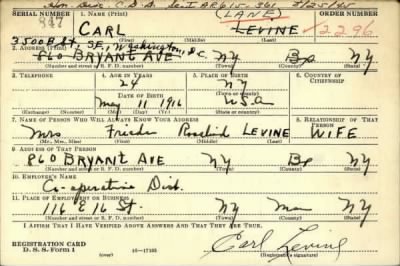 Hon. Disc. C.D.D. Sec. I AR 615-361 3/25/45
SERIAL NUMBER 1. NAME (Print) (LANE) ORDER NUMBER
847 CARL LEVINE 2296
(First) (Middle) (Last)
3500 B St., SE, Washington, D.C.
2. ADDRESS (Print)
860 BRYANT AVE NY Bx NY
(Number and street or R. F. D. number) (Town) (County) (State)
3. TELEPHONE 4. AGE IN YEARS 5. PLACE OF BIRTH 6. COUNTRY OF CITIZENSHIP
24 NY
DATE OF BIRTH (Town or county)
May 11 1916 USA
(Exchange) (Number) (Mo.) (Day) (Yr.) (State or country)
7. NAME OF PERSON WHO WILL ALWAYS KNOW YOUR ADDRESS 8. RELATIONSHIP OF THAT PERSON
Mrs Frieda Rosalind LEVINE WIFE
(Mr., Mrs., Miss) (First) (Middle) (Last)
9. ADDRESS OF THAT PERSON
860 BRYANT AVE NY Bx NY
(Number and street or R. F. D. number) (Town) (County) (State)
10. EMPLOYER'S NAME
Co-operative Dist.
11. PLACE OF EMPLOYMENT OR BUSINESS
116 E 16 St. NY Man NY
(Number and street or R. F. D. number) (Town) (County) (State)
I AFFIRM THAT I HAVE VERIFIED ABOVE ANSWERS AND THAT THEY ARE TRUE.
REGISTRATION CARD
D. S. S. Form 1 16-17105 Carl Levine
(Registrant's signature)